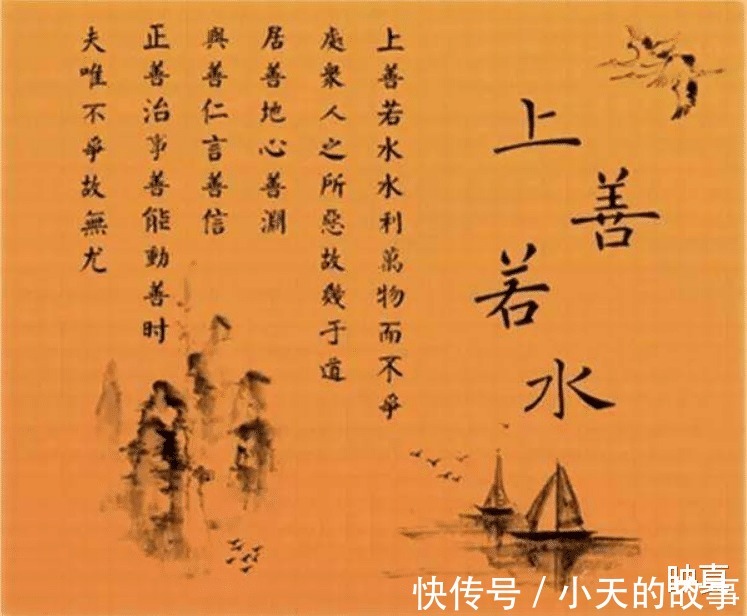 上善若水
上善若水水利萬物而不爭
處衆人之所惡故幾于道
居善地心善淵
與善仁言善信
正善治事善能動善时
夫唯不爭故無尤
映真
快传号 / 小天的故事